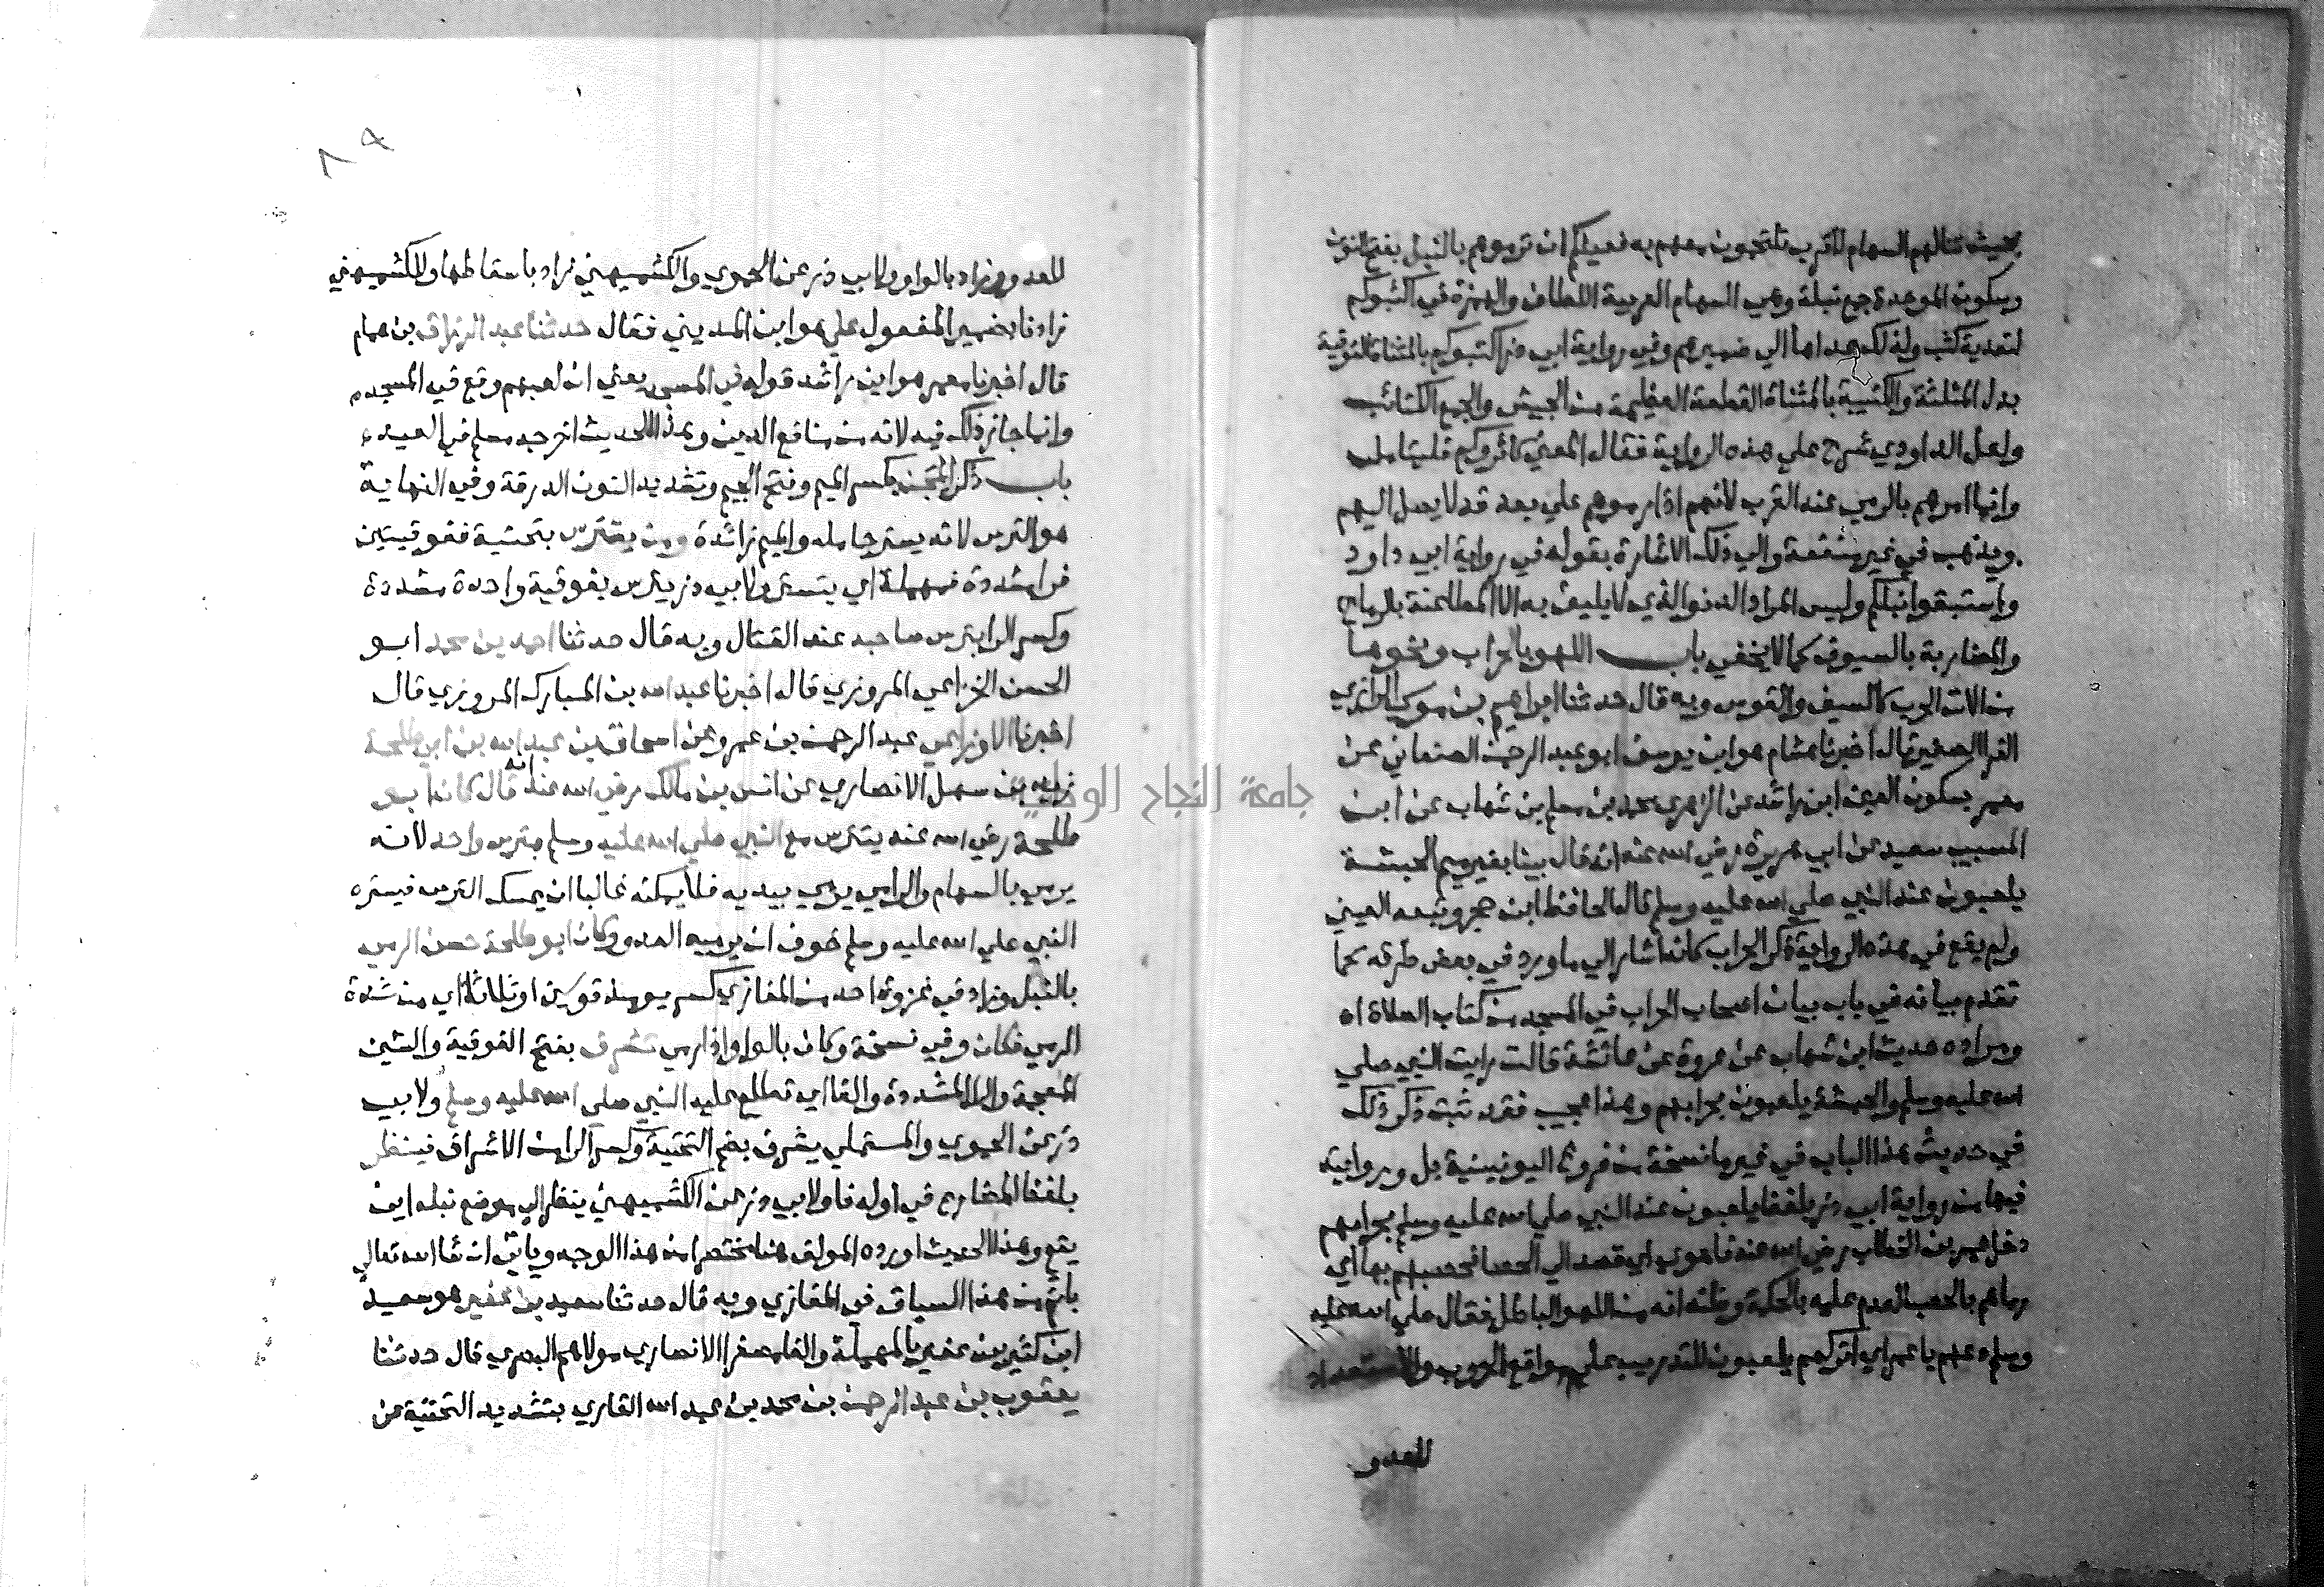 بحيث تنالهم السهام لا قرب تلتحمون معهم به فعليكم ان ترموهم بالنبل بفتح النون
وسكون الموحدة جمع نبلة وهي السهام العربية اللطاف والهمزة في اكثبوكم
لتعدية كثب ولذلك عداها الي ضميرهم وفي رواية ابي ذر اكتبوكم بالمثناة الفوقية
بدل المثلثة والكتيبة بالمثناة القطعة العظيمة من الجيش والجمع الكتائب
ولعل الداودي شرح علي هذه الرواية فقال المعني كاثروكم فليتامل
وانما امرهم بالرمي عند القرب لانهم اذا رموهم علي بعد قد لا يصل اليهم
ويذهب في غير منفعة والي ذلك الاشارة بقوله في رواية ابي داود
واستبقوا نبلكم وليس المراد الدنو الذي لا يليق به الا المطاعنة بالرماح
والمضاربة بالسيوف كما لا يخفي باب اللهو بالحراب ونحوها
من الات الحرب كالسيف والقوس وبه قال حدثنا ابراهيم بن موسي الرازي
الفرا الصغير قال اخبرنا هشام هو ابن يوسف ابو عبد الرحمن الصنعاني عن
معمر بسكون العين ابن راشد عن الزهري محمد بن مسلم بن شهاب عن ابن
المسيب سعيد عن ابي هريرة رضي الله عنه انه قال بينا بغير ميم الحبشة
يلعبون عند النبي صلي الله عليه وسلم قال الحافظ ابن حجر وتبعه العيني
ولم يقع في هذه الرواية ذكر الحراب كانه اشار الي ما ورد في بعض طرقه كما
تقدم بيانه في باب بيان اصحاب الحراب في المسجد من كتاب الصلاة اه
ومراده حديث ابن شهاب عن عروة عن عائشة قالت رايت النبي صلي
الله عليه وسلم والحبشة يلعبون بحرابهم وهذا عجيب فقد ثبت ذكر ذلك
في حديث هذا الباب في غير ما نسخة من فروع اليونينية بل و رواية
فيها من رواية ابي ذر بلفظ يلعبون عند النبي صلي الله عليه وسلم بحرابهم
دخل عمر بن الخطاب رضي الله عنه فاهوي اي قصد الي الحصا فحصبهم بها اي
رماهم بالحصب لعدم علمه بالحكمة وظنه انه من اللهو الباطل فقال صلي الله عليه
وسلم دعهم يا عمر اي اتركهم يلعبون للتدريب علي مواقع الحروب والاستعداد
للعدو
٨٩
للعدو وزاد بالواو ولابي ذر عن الحموي والكشميهني زاد باسقاطها وللكشميهني
زادنا بضمير المفعول علي هو ابن المديني فقال حدثنا عبد الرزاق بن همام
قال اخبرنا معمر هو ابن راشد قوله في المسجد يعني ان لعبهم وقع في المسجد
وانما جاز ذلك فيه لانه من منافع الدين وهذا الحديث اخرجه مسلم في العيد
باب ذكر المجن بكسر الميم وفتح الجيم وتشديد النون الدرقة وفي النهاية
هو الترس لانه يستر حامله والميم زائدة ومن يتترس بتحتية ففوقيتين
فرا مشددة فمهملة اي يتستر ولابي ذر يترس بفوقية واحدة مشددة
وكسر الرا بترس صاحبه عند القتال وبه قال حدثنا احمد بن محمد ابو
الحسن الخزاعي المروزي قال اخبرنا عبد الله بن المبارك المروزي قال
اخبرنا الاوزاعي عبد الرحمن بن عمرو عن اسحاق بن عبد الله بن ابي طلحة
زيد بن سهل الانصاري عن انس بن مالك رضي الله عنه انه قال كان ابو
طلحة رضي الله عنه يتترس مع النبي صلي الله عليه وسلم بترس واحد لانه
يرمي بالسهام والرامي يرمي بيديه فلا يمكنه غالبا ان يمسك الترس فيستره
النبي صلي الله عليه وسلم خوف ان يرميه العدو وكان ابو طلحة حسن الرمي
بالنبل وزاد في غزوة احد من المغازي كسر يومئذ قوسين او ثلاثا اي من شدة
الرمي فكان وفي نسخة وكان بالواو اذا رمي تشرف بفتح الفوقية والشين
المعجمة والرا المشددة والفا اي تطلع عليه النبي صلي الله عليه وسلم ولابي
ذر عن الحموي والمستملي يشرف بضم التحتية وكسر الرا من الاشراف فينظر
بلفظ المضارع في اوله فا ولابي ذر عن الكشميهني ينظر الي موضع نبله اين
يقع وهذا الحديث اورده المولف هنا مختصرا من هذا الوجه وياتي ان شا الله تعالي
باتم من هذا السياق في المغازي وبه قال حدثنا سعيد بن عفير هو سعيد
ابن كثير بن عفير بالمهملة والفا مصغرا الانصاري مولاهم البصري قال حدثنا
يعقوب بن عبد الرحمن بن محمد بن عبد الله القاري بتشديد التحتية عن
جامعة النجاح الوطنية